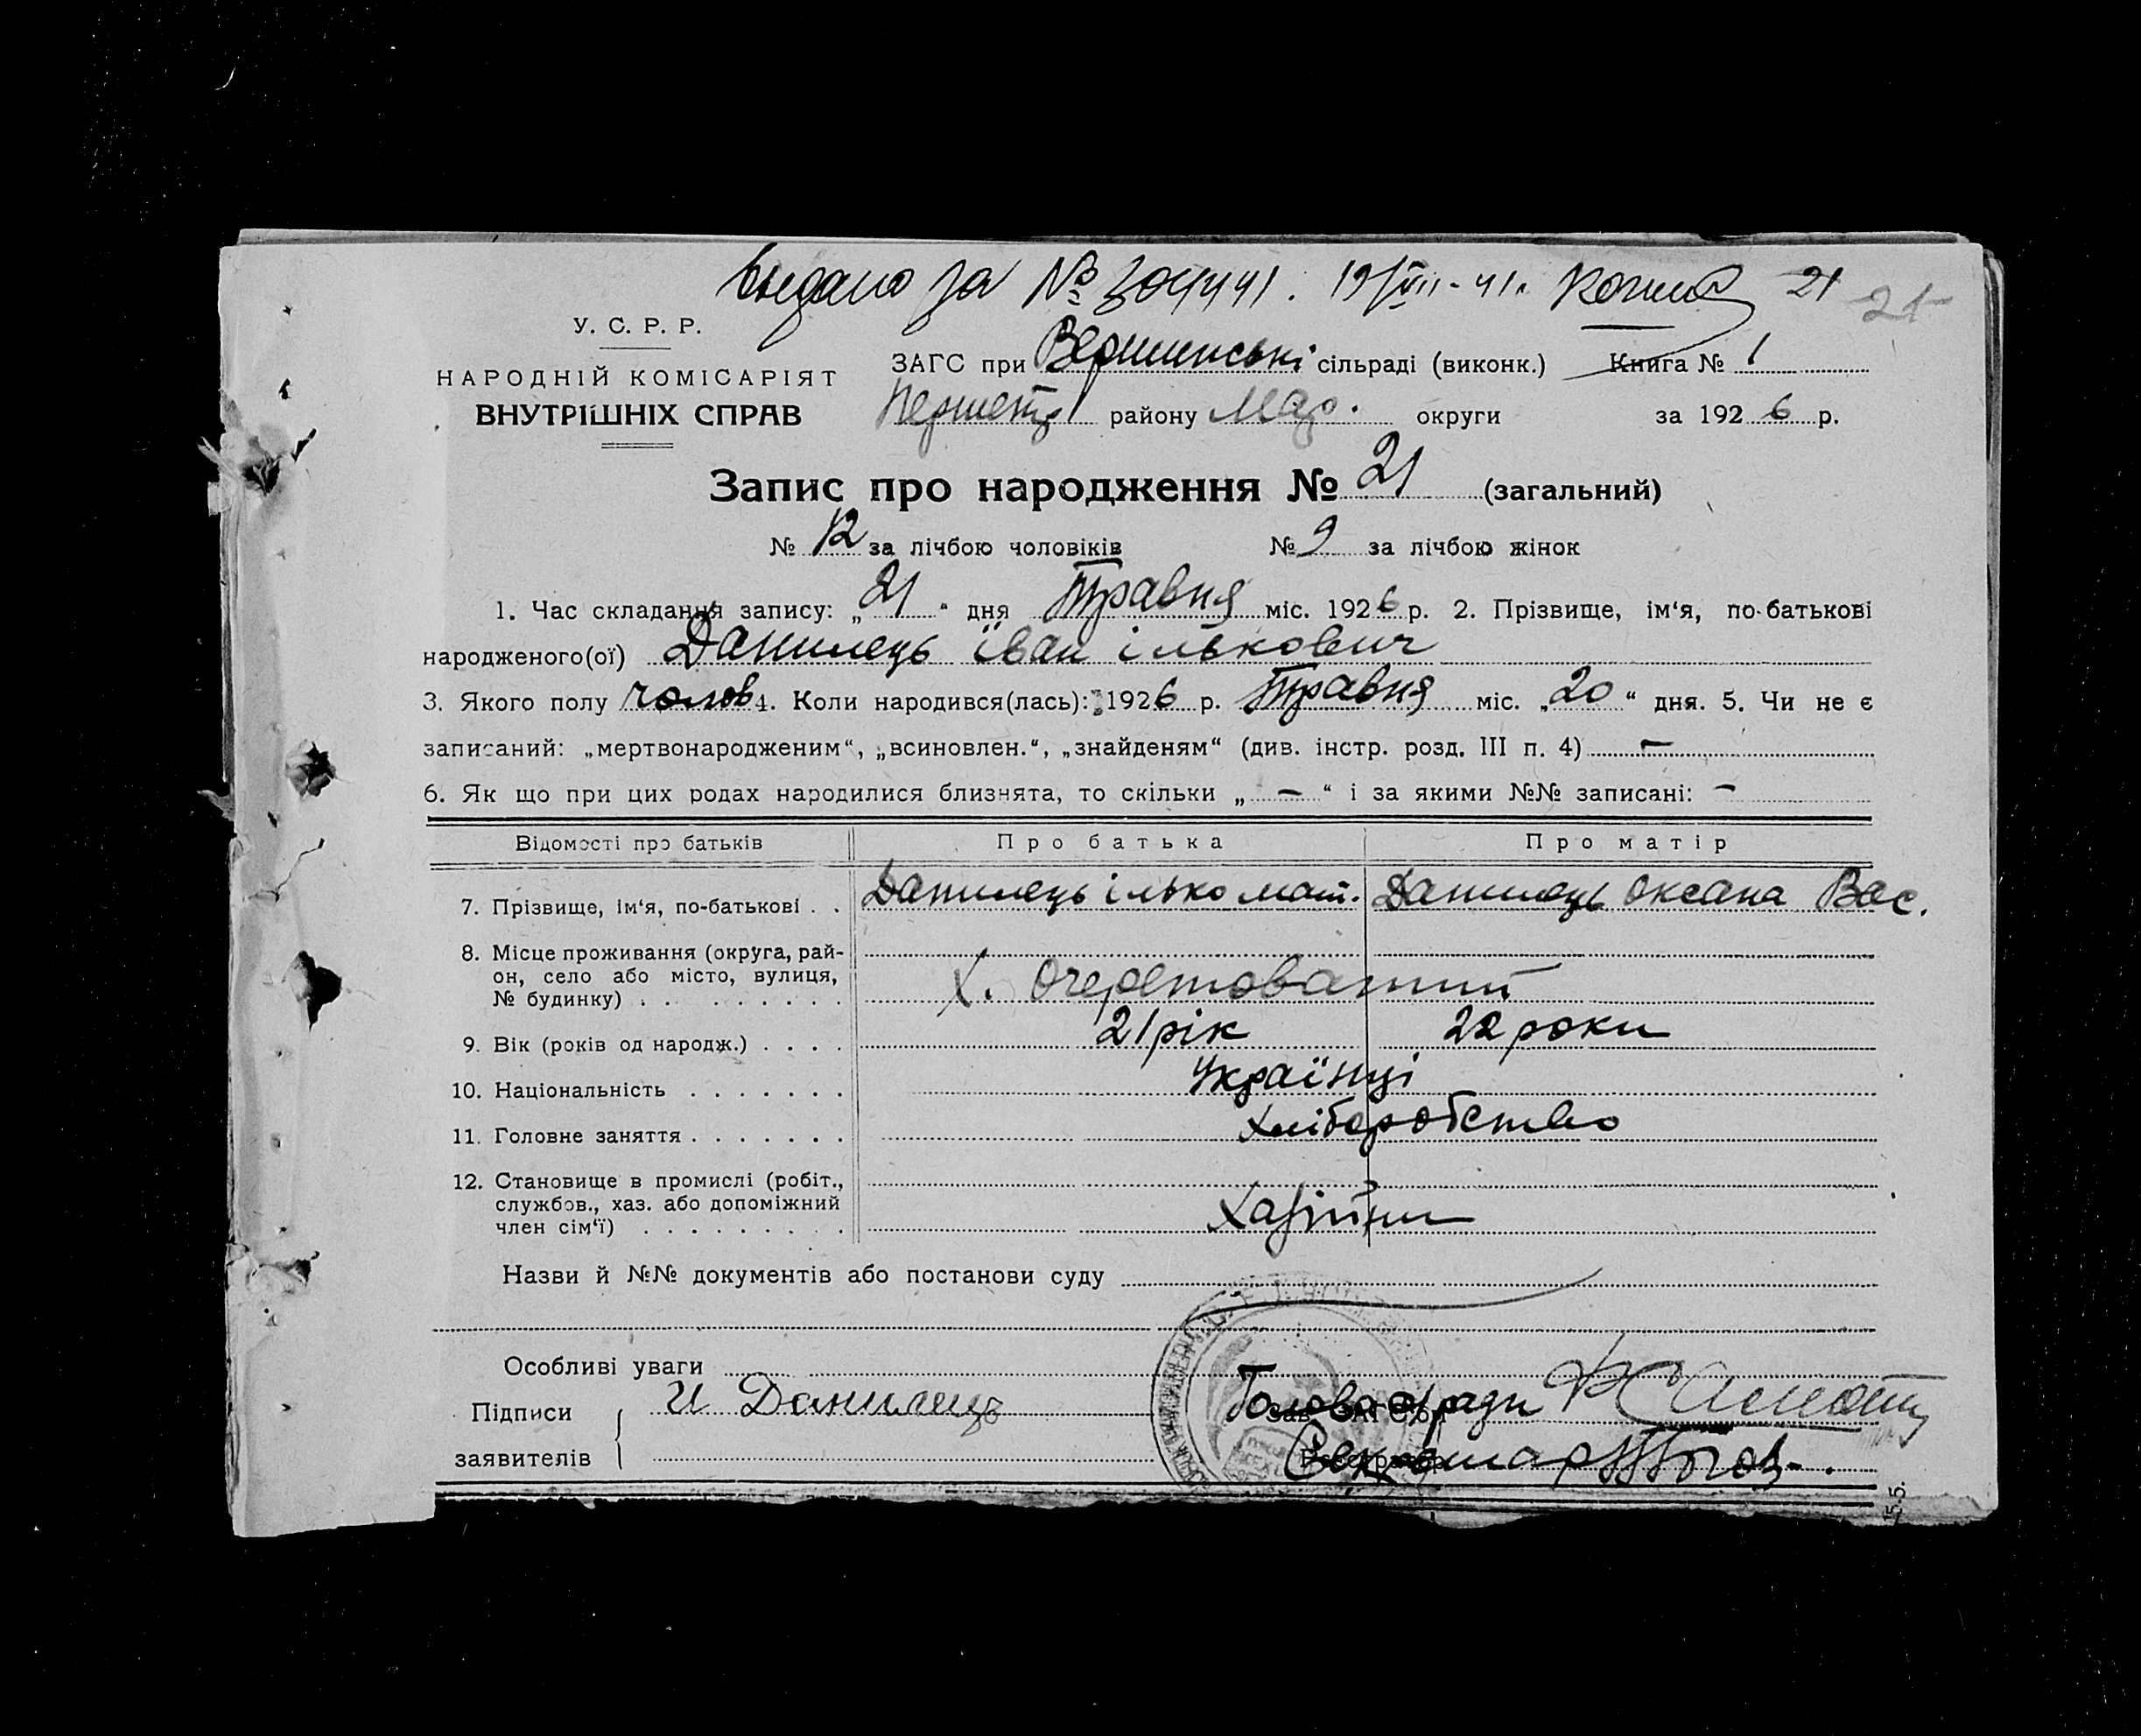 Видано за № 304441. 19/VII-41. 21 21
У. С. Р. Р.
НАРОДНІЙ КОМІСАРІЯТ
ВНУТРІШНІХ СПРАВ
ЗАГС при Вершинські сільраді (виконк.) Книга № 1
району Мар. округи за 1926 р.
Запис про народження № 21 (загальний)
№ 12 за лічбою чоловіків № 9 за лічбою жінок
1. Час складання запису: „21“ дня Травня міс. 1926 р. 2. Прізвище, ім‘я, по-батькові
народженого(ої) Данилець Іван Ількович
3. Якого полу чолов 4. Коли народився(лась): 1926 р. Травня міс. „20“ дня. 5. Чи не є
записаний: „мертвонародженим“, „всиновлен.“, „знайденям“ (див. інстр. розд. III п. 4) —
6. Як що при цих родах народилися близнята, то скільки „ — “ і за якими №№ записані: —
Відомості про батьків Про батька Про матір
7. Прізвище, ім‘я, по-батькові . . Данилець Ілько мат. Данилець Оксана Вас.
8. Місце проживання (округа, рай-
он, село або місто, вулиця,
№ будинку) . . . . . . . . . х. Очеретоватий
9. Вік (років од народж.) . . . . 21 рік 22 роки
10. Національність . . . . . . . Українці
11. Головне заняття . . . . . . . Хліборобство
12. Становище в промислі (робіт.,
службов., хаз. або допоміжний
член сім‘ї) . . . . . . . . . Хазяїни
Назви й №№ документів або постанови суду
Особливі уваги
Підписи И Данилець Голова с/ради
заявителів Секретар